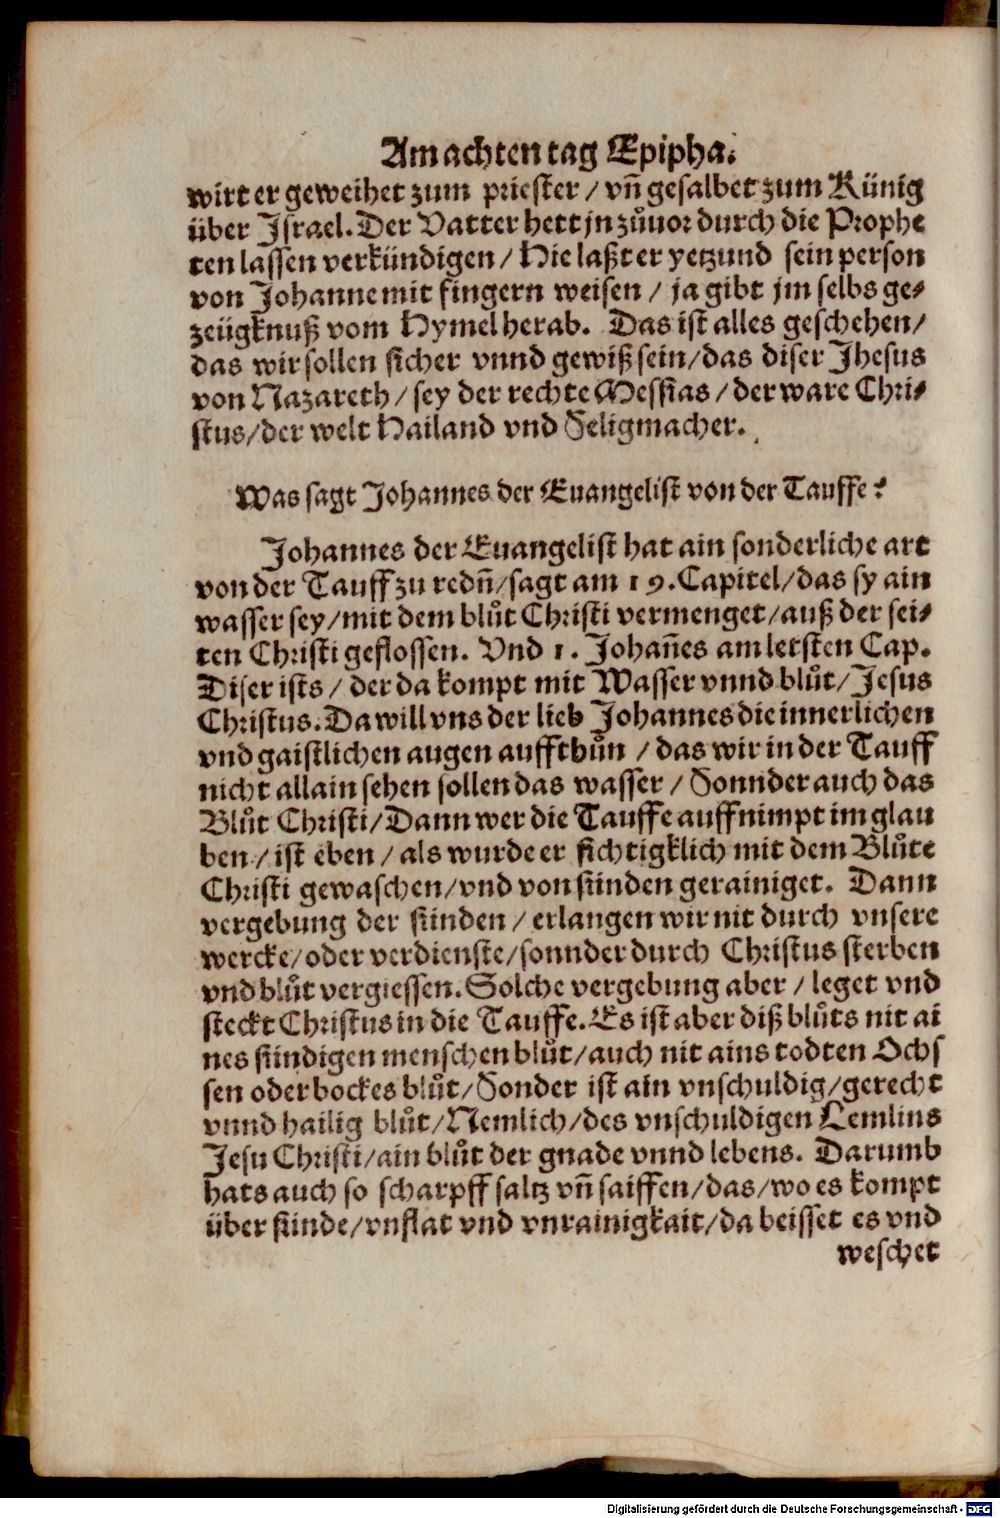 Am achten tag Epipha.
wirt er geweihet zum priester / vn̄ gesalbet zum Künig
über Israel. Der Vatter hett jn zůuor durch die Prophe
ten lassen verkündigen / Hie laßt er yetzund sein person
von Johanne mit fingern weisen / ja gibt jm selbs ge⸗
zeügknuß vom Hymel herab. Das ist alles geschehen /
das wir sollen sicher vnnd gewiß sein / das diser Jhesus
von Nazareth / sey der rechte Messias / der ware Chri⸗
stus / der welt Hailand vnd Seligmacher.
Was sagt Johannes der Euangelist von der Tauffe?
Johannes der Euangelist hat ain sonderliche art
von der Tauff zu redn̄ / sagt am 19. Capitel / das sy ain
wasser sey / mit dem blůt Christi vermenget / auß der sei⸗
ten Christi geflossen. Vnd 1. Johan̄es am letsten Cap.
Diser ists / der da kompt mit Wasser vnnd blůt / Jesus
Christus. Da will vns der lieb Johannes die innerlichen
vnd gaistlichen augen auffthůn / das wir in der Tauff
nicht allain sehen sollen das wasser / Sonnder auch das
Blůt Christi / Dann wer die Tauffe auffnimpt im glau
ben / ist eben / als wurde er sichtigklich mit dem Blůte
Christi gewaschen / vnd von sünden gerainiget. Dann
vergebung der sünden / erlangen wir nit durch vnsere
wercke / oder verdienste / sonnder durch Christus sterben
vnd blůt vergiessen. Solche vergebung aber / leget vnd
steckt Christus in die Tauffe. Es ist aber diß blůts nit ai
nes sündigen menschen blůt / auch nit ains todten Ochs
sen oder bockes blůt / Sonder ist ain vnschuldig / gerecht
vnnd hailig blůt / Nemlich / des vnschuldigen Lemlins
Jesu Christi / ain blůt der gnade vnnd lebens. Darumb
hats auch so scharpff saltz vn̄ saiffen / das / wo es kompt
über sünde / vnflat vnd vnrainigkait / da beisset es vnd
weschet
Digitalisierung gefördert durch die Deutsche Forschungsgemeinschaft - DFG